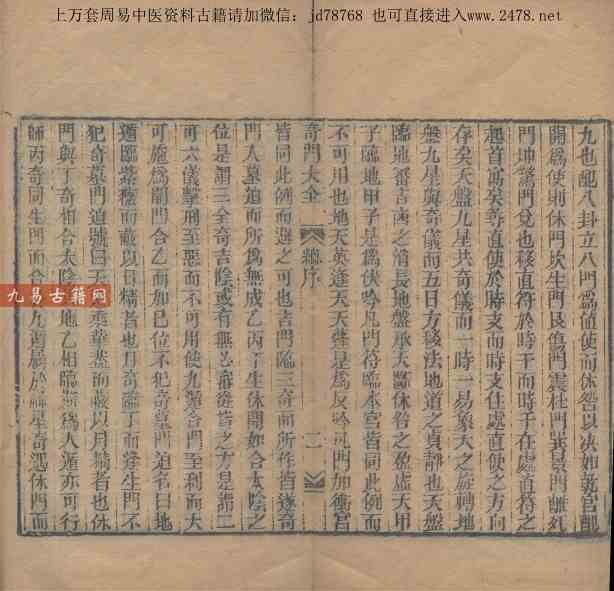 上万套周易中医资料古籍请加微信：jd78768 也可直接进入www.2478.net
九也配八卦立八門需值使而休咎以決如乾宮配
開爲使則休門坎生門艮傷門震杜門巽景門離死
門坤驚門兌也移直符於時干而時干在處直符之
起首寓矣尋直使於時支而時支住處直使之方向
存矣天盤九星共奇儀而一時一易象天之旋轉地
盤九星與奇儀而五日方移法地道之貞靜也天盤
臨地審吉凶之消長地盤承天斷休咎之盈虛天甲
子臨地甲子是爲伏吟凡門符臨本宮皆同此例而
不可用也地天英逢天天蓬是爲反吟凡門加衝宮
奇門大全 總序 二
皆同此例而避之可也吉門臨三奇而所作皆遂奇
門入墓迫而所爲無成乙丙丁生休開如合太陰之
位是謂三全奇吉陰或有無必審從皆之方是謂二
可六儀擊刑至惡而不可用使九遁合門至利而大
可施爲開門合乙而如巳位不犯奇墓門迫名曰地
遁臨紫微而蔽以日精者也月奇臨丁而逢生門不
犯奇墓門迫號曰天 乘華蓋而蔽以月精者也休
門與丁奇相合太陰 地乙相臨 爲人遁亦可行
師丙奇同生門而合九 於 星奇遇休門而
九易古籍网